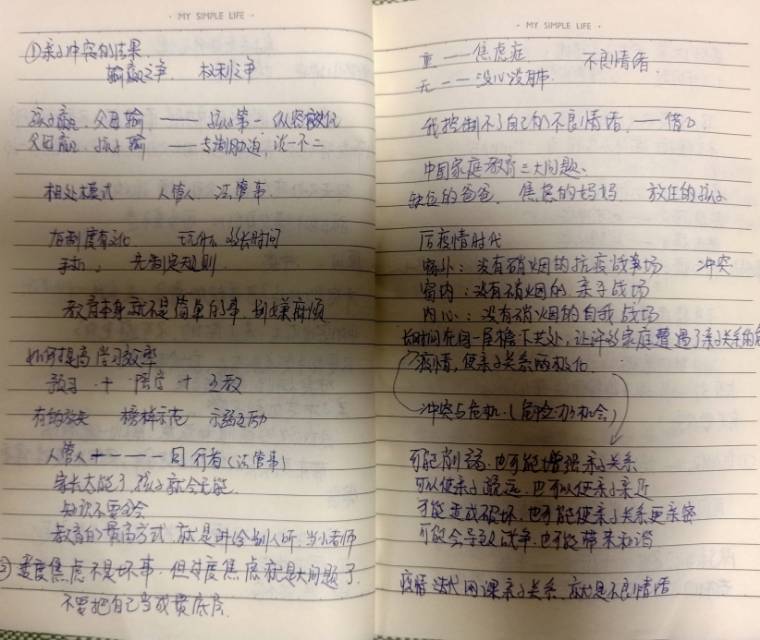 · MY SIMPLE LIFE ·
①亲子冲突的结果
输赢之争 权利之争
孩子赢 父母输 —— 孩子第一
父母赢 孩子输 —— 专制 说一不二
相处模式 人管人 法管事
有制度有文化 玩什么 多长时间
手机 先制定规则
教育本身就不是简单的事 别嫌麻烦
如何提高学习效率
预习 + 陪学 +
榜样示范 示弱互动
人管人 + —— 同行者（法管事）
家长太能了 孩子就会无能
知识不要全会
教育的最高方式 就是讲给别人听 当小老师
焦虑不是坏事 但过度焦虑就是大问题了
不要把自己当成
· MY SIMPLE LIFE ·
重 —— 焦虑症 不良情绪
无 —— 没心没肺
我控制不了自己的不良情绪 —— 借口
中国家庭教育三大问题
缺位的爸爸 焦虑的妈妈 放任的孩子
后疫情时代
窗外：没有硝烟的抗疫战争场 冲突
窗内：没有硝烟的 亲子战场
内心：没有硝烟的自我战场
长时间在同一屋檐下共处，让许多家庭遭遇了亲子关系的
疫情，使亲子关系两极化
冲突与危机
可能削弱 也可能增强亲子关系
可以使亲子疏远 也可以使亲子亲近
可能造成破坏 也可能使亲子关系更亲密
可能会导致战争 也可能带来和谐
疫情 网课亲子关系 就是不良情绪